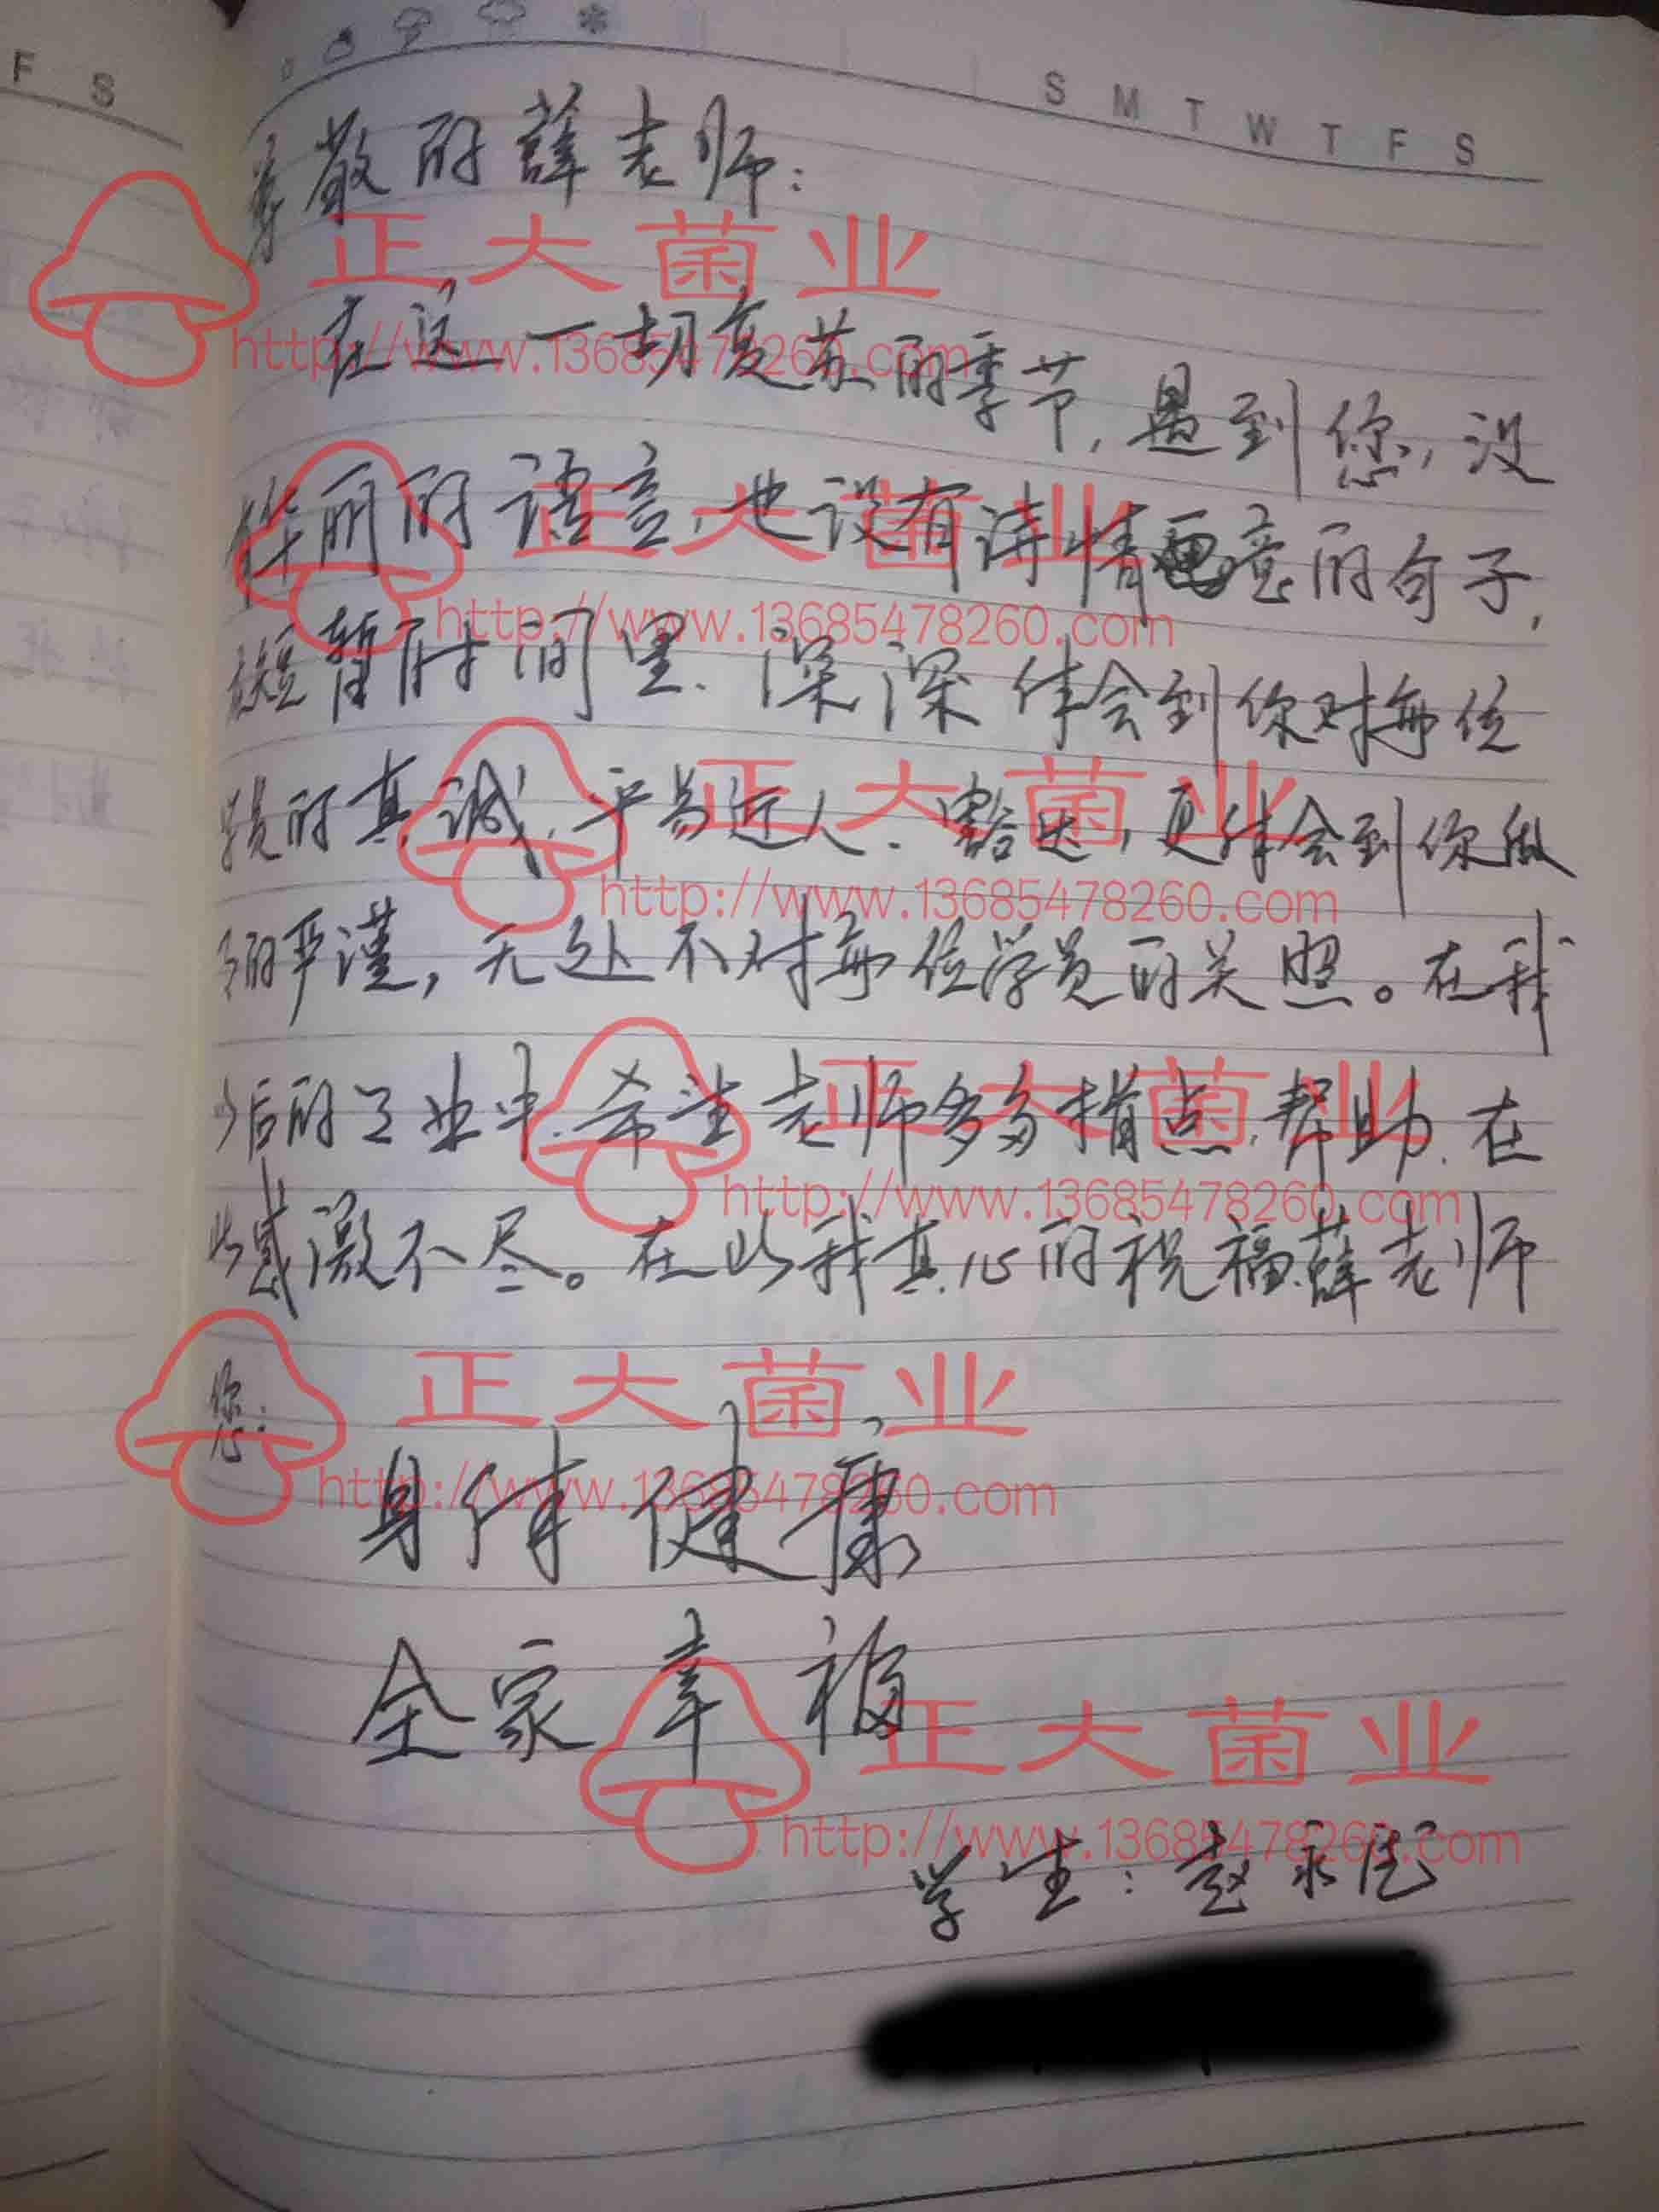 F S
S M T W T F S
尊敬的薛老师:
正大菌业
http://www.13685478260.com
在这一切复苏的季节,遇到您,没
华丽的语言,也没有诗情画意的句子,
正大菌业
http://www.13685478260.com
短暂时间里、深深体会到你对每位
学员的真诚、平易近人、豁达,更体会到你做
正大菌业
http://www.13685478260.com
的严谨,无处不对每位学员的关照。在我
后的工业中、希望老师多多指点,帮助、在
正大菌业
http://www.13685478260.com
此感激不尽。在此我真心的祝福薛老师
您:
正大菌业
http://www.13685478260.com
身体健康
全家幸福
正大菌业
http://www.13685478260.com
学生:赵永